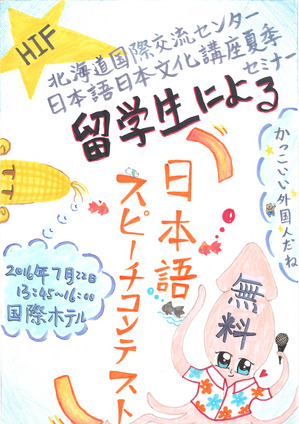 HIF
北海道国際交流センター
日本語日本文化講座夏季
セミナー
留学生による
日本語
スピーチコンテスト
かっこいい外国人だね
2016年7月22日
13:45~16:00
国際ホテル
無料